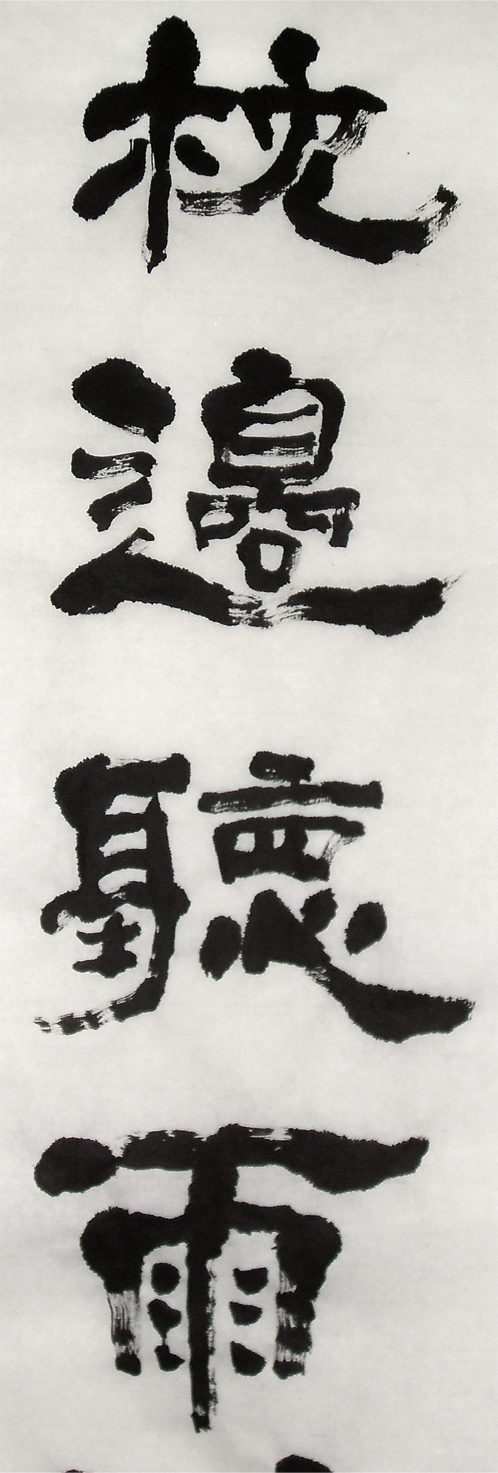 枕邊聽雨